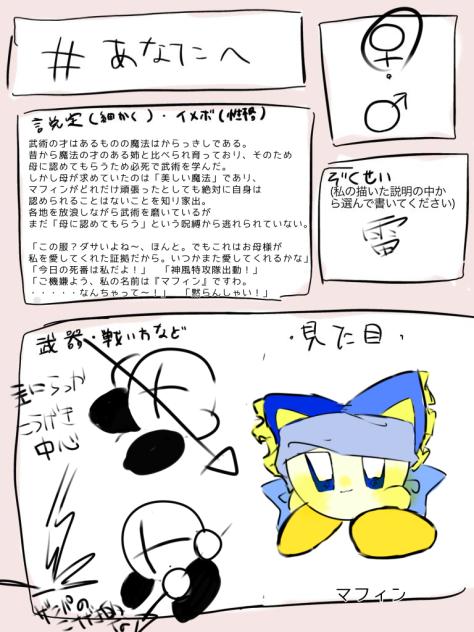 #あなたこへ
♀
♂
言定(細かく)・イメボ(性格)
武術の才はあるものの魔法はからっきしである。
昔から魔法の才のある姉と比べられ育っており、そのため
母に認めてもらうため必死で武術を学んだ。
しかし母が求めていたのは「美しい魔法」であり、
マフィンがどれだけ頑張ったとしても絶対に自身は
認められることはないことを知り家出。
各地を放浪しながら武術を磨いているが
まだ「母に認めてもらう」という呪縛から逃れられていない。
「この服?ダサいよね〜、ほんと。でもこれはお母様が
私を愛してくれた証拠だから。いつかまた愛してくれるかな」
「今日の死番は私だよ!」 「神風特攻隊出動!」
「ご機嫌よう、私の名前は『マフィン』ですわ。
・・・・・なんちゃって〜!」 「黙らんしゃい!」
ぞくせい
(私の描いた説明の中か
ら選んで書いてください)
雷
武器・戦い方など
こうげき
中心
・見た目・
マフィン